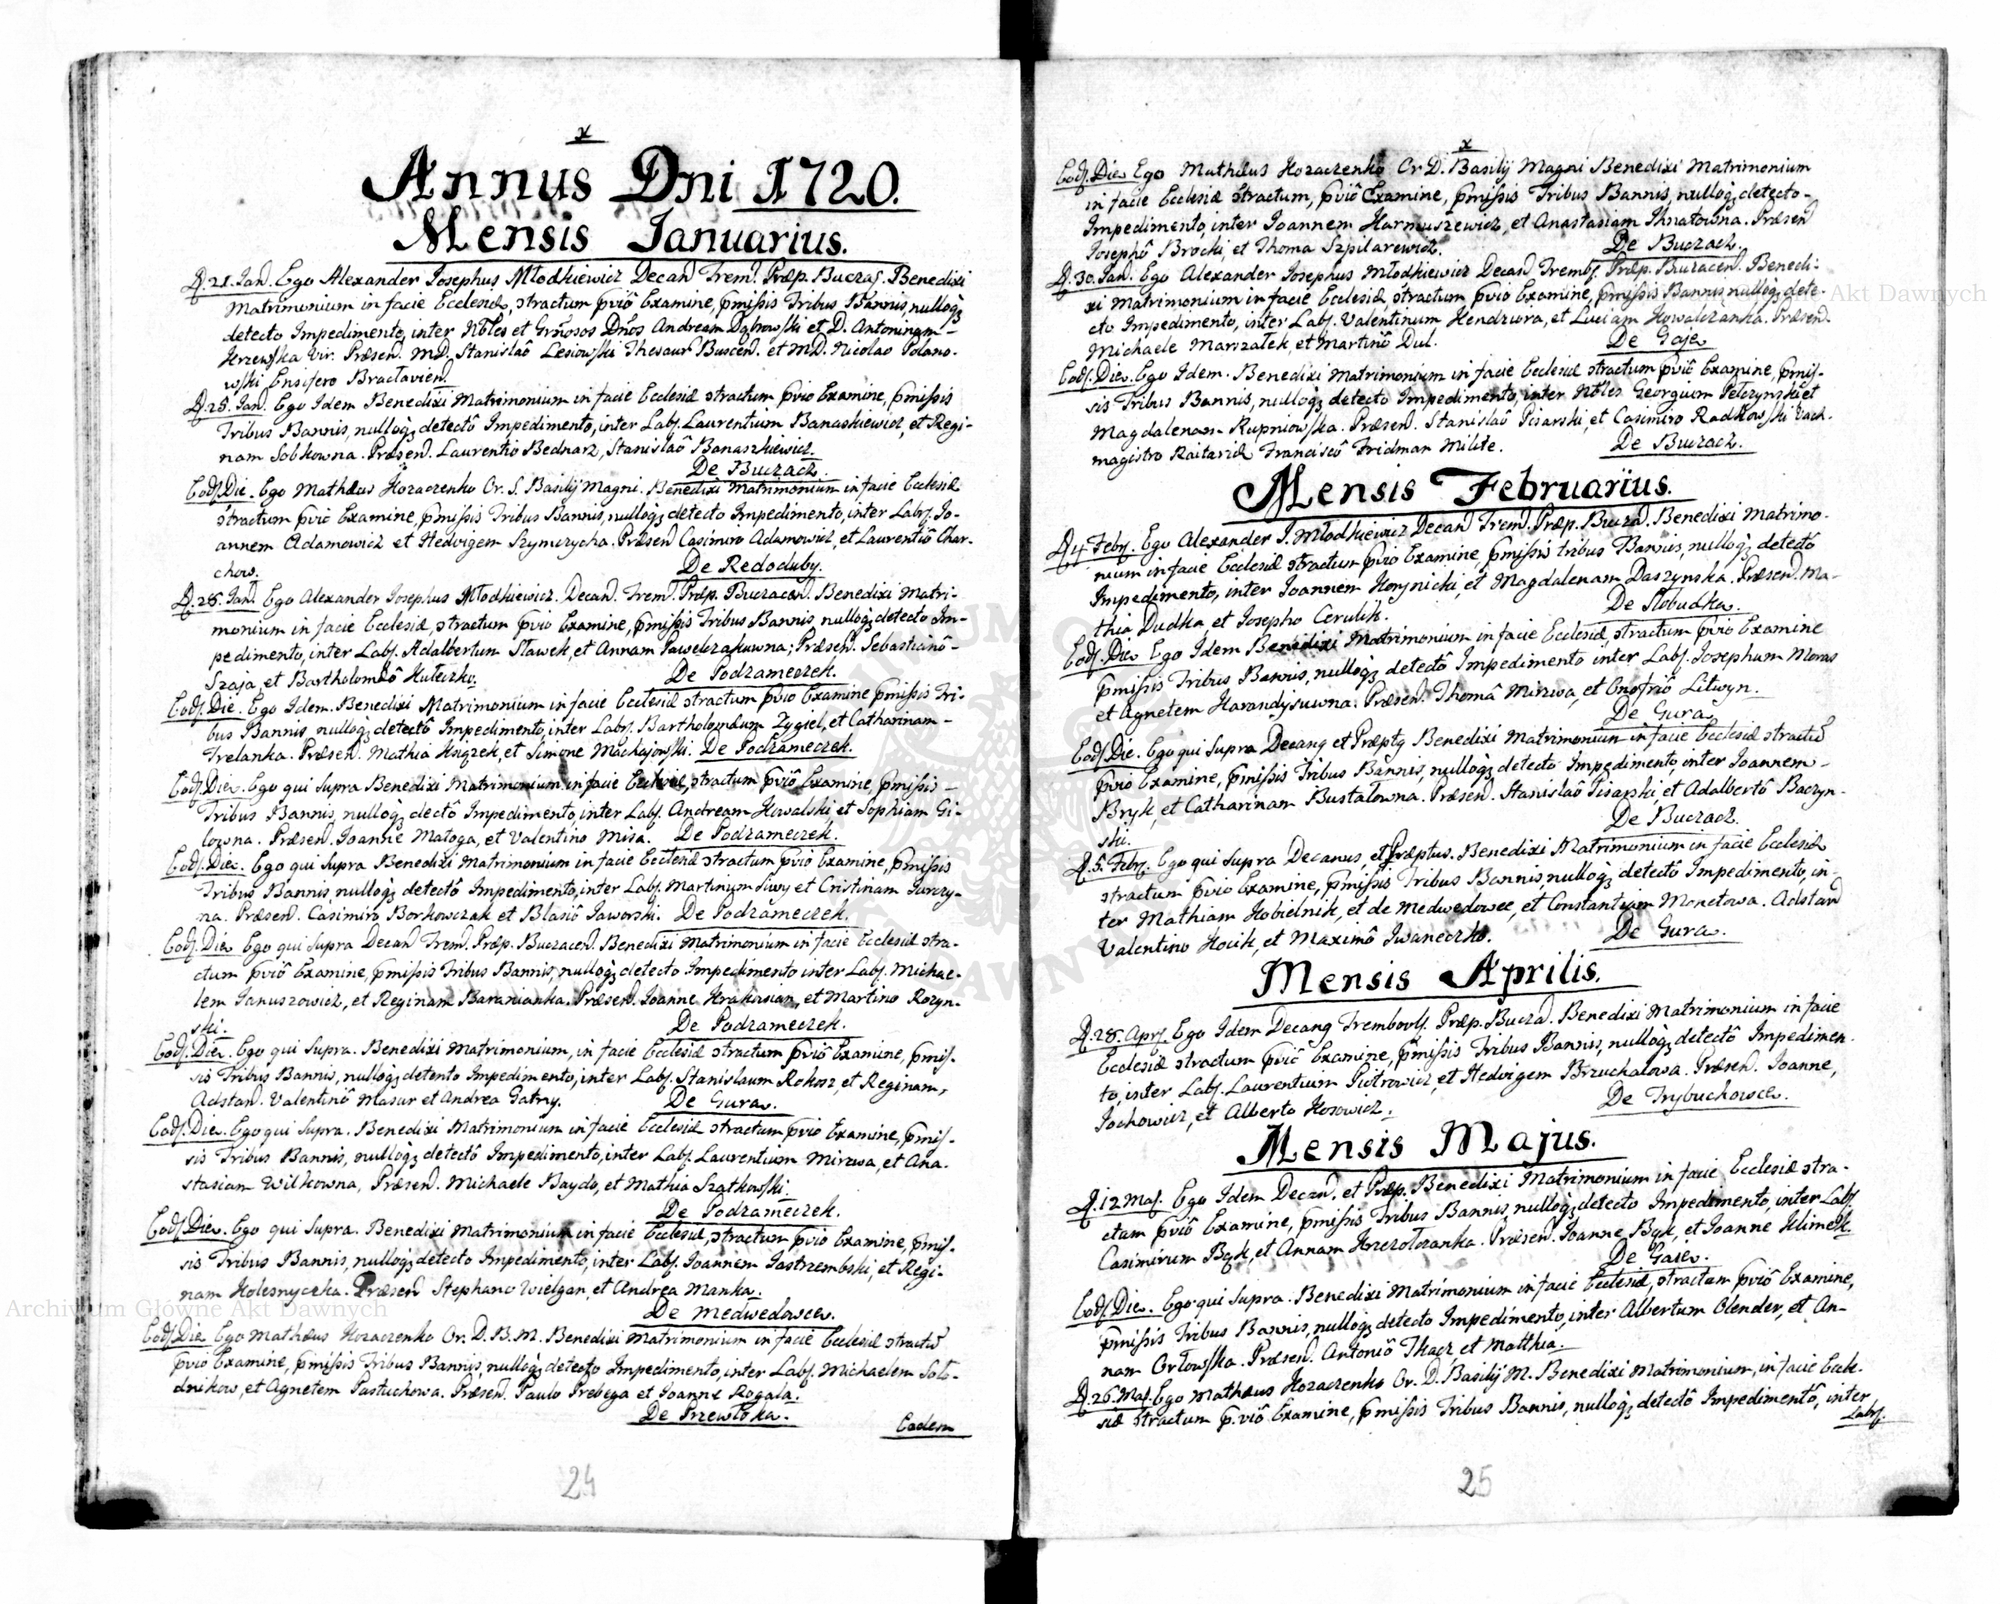 Annus Dni 1720.
Mensis Ianuarius.
D. 21. Jan. Ego Alexander Josephus Młodkiewicz Decan Trem. Præp. Buczas. Benedixi
Matrimonium in facie Ecclesiæ, stractum pviô Examine, pmissis Tribus Bannis, nulloq;
detecto Impedimento, inter Nbles et Grñosos Dños Andream Dąbrowski et D. Antoninam
Krzewska Vir. Præsen. MD. Stanislaô Lesiowski Thesaur Buscen. et MD. Nicolao Polano-
wski Ensifero Bracłavien.
D. 28. Jan. Ego Idem Benedixi Matrimonium in facie Ecclesiæ stractum pvio Examine, pmissis
Tribus Bannis, nulloq; detectô Impedimento, inter Labs. Laurentium Banaskiewicz, et Regi-
nam Sobkowna. Præsen. Laurentio Bednarz, Stanislaô Banaszkiewicz.
De Buczacz.
Eod. Die. Ego Mathæus Kozaczenko Or. S. Basilij Magni. Benedixi Matrimonium in facie Ecclesiæ
stractum pvio Examine, pmissis Tribus Bannis, nulloq; detecto Impedimento, inter Labs. Jo-
annem Adamowicz et Hedvigem Szymczycha. Præsen Casimiro Adamowicz, et Laurentiô Char-
chow.
De Redoduby.
D. 28. Jan. Ego Alexander Josephus Młodkiewicz. Decan. Trem. Præp. Buczacen. Benedixi Matri-
monium in facie Ecclesiæ, stractum pvio Examine, pmissis Tribus Bannis, nulloq; detecto Im-
pedimento, inter Labs. Adalbertum Sławek, et Annam Pawelczakowna; Præsen. Sebastianô
Szaja et Bartholomæô Huleczko.
De Podzameczek.
Eod. Die. Ego Idem. Benedixi Matrimonium in facie Ecclesiæ stractum pvio Examine pmissis Tri-
bus Bannis, nulloq; detectô Impedimento, inter Labs. Bartholomæum Zygiel, et Catharinam
Trelanka. Præsen. Mathia Książek, et Simone Machajowski. De Podzameczek.
Eod. Die. Ego qui Supra Benedixi Matrimonium in facie Ecclesiæ stractum pviô Examine, pmissis
Tribus Bannis, nulloq; detectô Impedimento, inter Labs. Andream Kowalski, et Sophiam Gi-
lowna. Præsen. Joanne Małoga, et Valentino Misa. De Podzameczek.
Eod. Die. Ego qui Supra Benedixi Matrimonium in facie Ecclesiæ stractum pvio Examine, pmissis
Tribus Bannis, nulloq; detectô Impedimento, inter Labs. Martinum Siwy et Cristinam Jurczy-
na. Præsen. Casimiro Borkowczak et Blasiô Jaworski. De Podzameczek.
Eod. Die Ego qui Supra Decan Trem. Præp. Buczacen. Benedixi Matrimonium in facie Ecclesiæ stra-
ctum pviô Examine, pmissis Tribus Bannis, nulloq; detecto Impedimento inter Labs. Michae-
lem Januszowicz, et Reginam Baranianka. Præsen. Joanne Krakosian, et Martino Rozyn-
ski.
De Podzameczek.
Eod. Die. Ego qui Supra. Benedixi Matrimonium, in facie Ecclesiæ stractum pviô Examine, pmis-
sis Tribus Bannis, nulloq; detento Impedimento, inter Labs. Stanislaum Rokosz, et Reginam,
Adstan. Valentinô Masur et Andrea Gatny.
De Gura.
Eod. Die. Ego qui Supra. Benedixi Matrimonium in facie Ecclesiæ stractum pvio Examine, pmis-
sis Tribus Bannis, nulloq; detectô Impedimento, inter Labs. Laurentium Mirzwa, et Ana-
stasiam Wilkowna, Præsen. Michaele Baydo, et Mathia Szatkowski.
De Podzameczek.
Eod. Die. Ego qui Supra. Benedixi Matrimonium in facie Ecclesiæ, stractum pvio Examine, pmis-
sis Tribus Bannis, nulloq; detecto Impedimento, inter Labs. Joannem Jastrzembski, et Regi-
nam Kolesnyczka. Præsen Stephano Wielgan, et Andrea Manka.
De Medwedowce.
Eod. Die Ego Mathæus Kozaczenko Or. D. B. M. Benedixi Matrimonium in facie Ecclesiæ stractũ
pvio Examine, pmissis Tribus Bannis, nulloq; detecto Impedimento, inter Labs. Michaelem Soło-
dnikow, et Agnetem Pastuchowa. Præsen. Paulo Prebega et Joanne Rogala.
De Przewłoka.
Eadem
24
Eod. Die Ego Mathæus Kozaczenko Or D. Basilij Magni Benedixi Matrimonium
in facie Ecclesiæ stractum, pviô Examine, pmissis Tribus Bannis, nulloq; detecto
Impedimento, inter Joannem Harmuszewicz, et Anastasiam Ihnatowna. Præsen
Josephô Brocki, et Thoma Szpilarewicz.
De Buczacz.
D. 30. Jan. Ego Alexander Josephus Młodkiewicz Decan Trembs. Præp. Buczacen. Benedi-
xi Matrimonium in facie Ecclesiæ stractum pvio Examine, pmissis Bannis nulloq; dete-
cto Impedimento, inter Labs. Valentinum Hendzura, et Luciam Kowalczanka. Præsen.
Michaele Marszałek, et Martinô Dul.
De Gaje.
Eod. Die. Ego Idem. Benedixi Matrimonium in facie Ecclesiæ stractum pviô Examine, pmis-
sis Tribus Bannis, nulloq; detecto Impedimento, inter Nbles Georgium Pełczynski et
Magdalenam Rupniowska. Præsen. Stanislaô Pisarski, et Casimiro Radkowski
magistro Franciscô Fridman Milite.
De Buczacz.
Mensis Februarius.
D. 4 Febr. Ego Alexander J. Młodkiewicz Decan Trem. Præp. Bucza. Benedixi Matrimo-
nium in facie Ecclesiæ stractum pvio Examine, pmissis tribus Bannis, nulloq; detectô
Impedimento, inter Joannem Korynicki, et Magdalenam Daszynska. Præsen. Ma-
thia Dudka, et Josepho Cerulik.
De Słobudka.
Eod. Die Ego Idem Benedixi Matrimonium in facie Ecclesiæ, stractum pvio Examine
pmissis Tribus Bannis, nulloq; detectô Impedimento inter Labs. Josephum Moras
et Agnetem Harandysuwna. Præsen. Thomâ Mirzwa, et Onofriô Litwyn.
De Gura.
Eod. Die. Ego qui Supra Decanq et Præptq Benedixi Matrimonium in facie Ecclesiæ stractũ
pvio Examine, pmissis Tribus Bannis, nulloq; detecto Impedimento, inter Joannem
Bryk, et Catharinam Bustalowna. Præsen. Stanislaô Pisarski et Adalbertô Baczyn-
ski.
De Buczacz.
D. 5. Febr. Ego qui Supra Decanus, et Præptus. Benedixi Matrimonium in facie Ecclesiæ
stractum pvio Examine, pmissis Tribus Bannis, nulloq; detectô Impedimento, in-
ter Mathiam Kobielnik, et de Medwedowce, et Constantiam Monetowa. Adstan
Valentino Kocik, et Maximô Iwaneczko.
De Gura.
Mensis Aprilis.
D. 28. Apr. Ego Idem Decanq Trembovls. Præp. Bucza. Benedixi Matrimonium in facie
Ecclesiæ stractum pviô Examine, pmissis Tribus Bannis, nulloq; detectô Impedimen-
to, inter Labs. Laurentium Piotrowicz, et Hedvigem Brzuchalowa. Præsen. Joanne,
Jochowicz, et Alberto Kosowicz.
De Trybuchowce.
Mensis Majus.
D. 12 Maj. Ego Idem Decan. et Præp. Benedixi Matrimonium in facie Ecclesiæ stra-
ctum pviô Examine, pmissis Tribus Bannis, nulloq; detecto Impedimento, inter Labs.
Casimirum Bąk, et Annam Krzczolczanka. Præsen. Joanne Bąk, et Joanne Klimek
De Gaie.
Eod. Die. Ego qui Supra. Benedixi Matrimonium in facie Ecclesiæ, stractum pviô Examine,
pmissis Tribus Bannis, nulloq; detecto Impedimento, inter Albertum Olender, et An-
nam Orłowska. Præsen. Antoniô Tkacz et Matthia.
D. 26. Maj. Ego Mathæus Kozaczenko Or. D. Basilij M. Benedixi Matrimonium, in facie Eccle-
siæ stractum p.viô Examine, pmissis Tribus Bannis, nulloq; detectô Impedimentô, inter
Labs.
25
Archiwum Główne Akt Dawnych